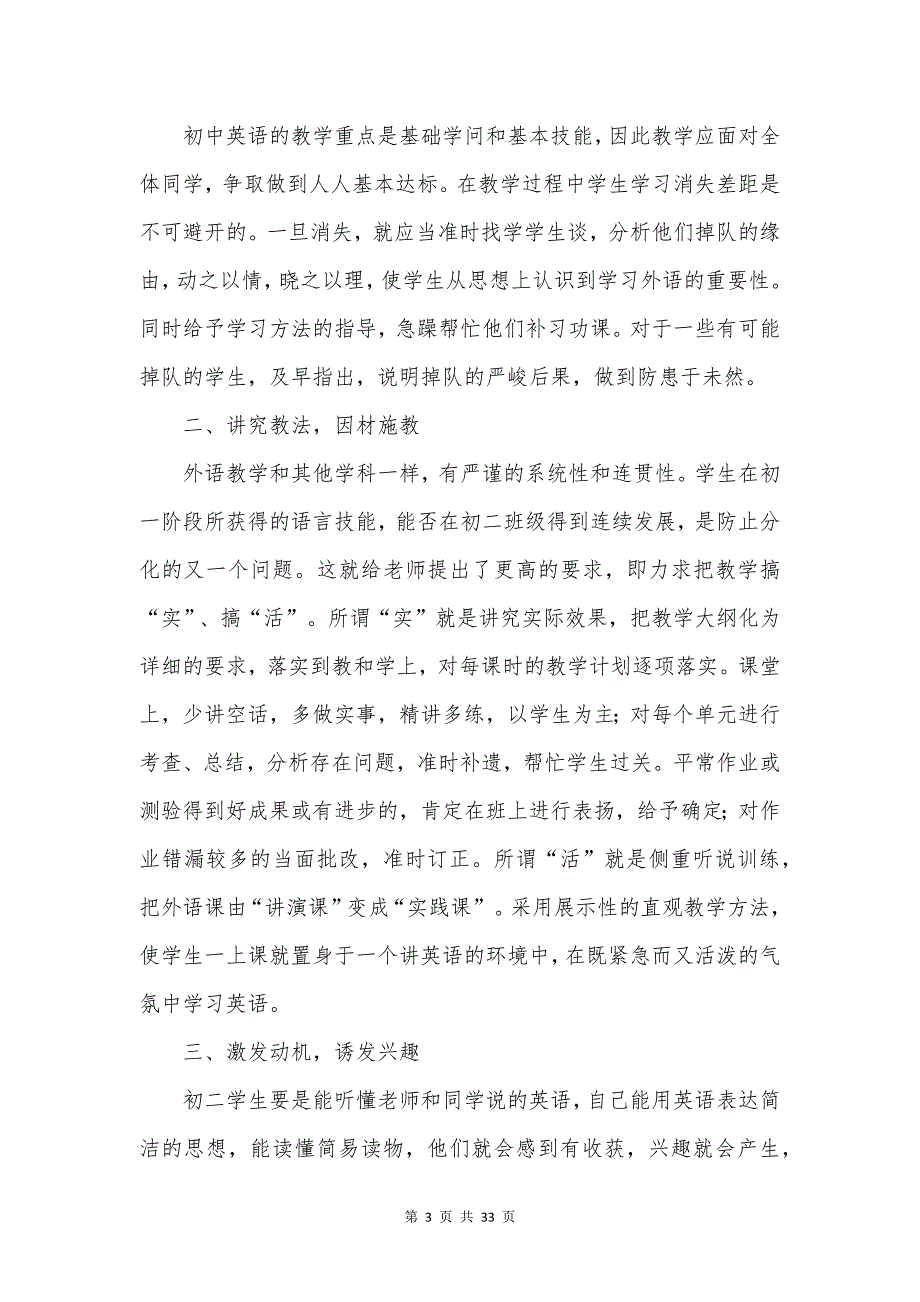 初中英语的教学重点是基础学问和基本技能，因此教学应面对全
体同学，争取做到人人基本达标。在教学过程中学生学习消失差距是
不可避开的。一旦消失，就应当准时找学学生谈，分析他们掉队的缘
由，动之以情，晓之以理，使学生从思想上认识到学习外语的重要性。
同时给予学习方法的指导，急躁帮忙他们补习功课。对于一些有可能
掉队的学生，及早指出，说明掉队的严峻后果，做到防患于未然。
二、讲究教法，因材施教
外语教学和其他学科一样，有严谨的系统性和连贯性。学生在初
一阶段所获得的语言技能，能否在初二班级得到连续发展，是防止分
化的又一个问题。这就给老师提出了更高的要求，即力求把教学搞
“实”、搞“活”。所谓“实”就是讲究实际效果，把教学大纲化为
详细的要求，落实到教和学上，对每课时的教学计划逐项落实。课堂
上，少讲空话，多做实事，精讲多练，以学生为主；对每个单元进行
考查、总结，分析存在问题，准时补遗，帮忙学生过关。平常作业或
测验得到好成果或有进步的，肯定在班上进行表扬，给予确定；对作
业错漏较多的当面批改，准时订正。所谓“活”就是侧重听说训练，
把外语课由“讲演课”变成“实践课”。采用展示性的直观教学方法，
使学生一上课就置身于一个讲英语的环境中，在既紧急而又活泼的气
氛中学习英语。
三、激发动机，诱发兴趣
初二学生要是能听懂老师和同学说的英语，自己能用英语表达简
洁的思想，能读懂简易读物，他们就会感到有收获，兴趣就会产生，
第 3 页 共 33 页